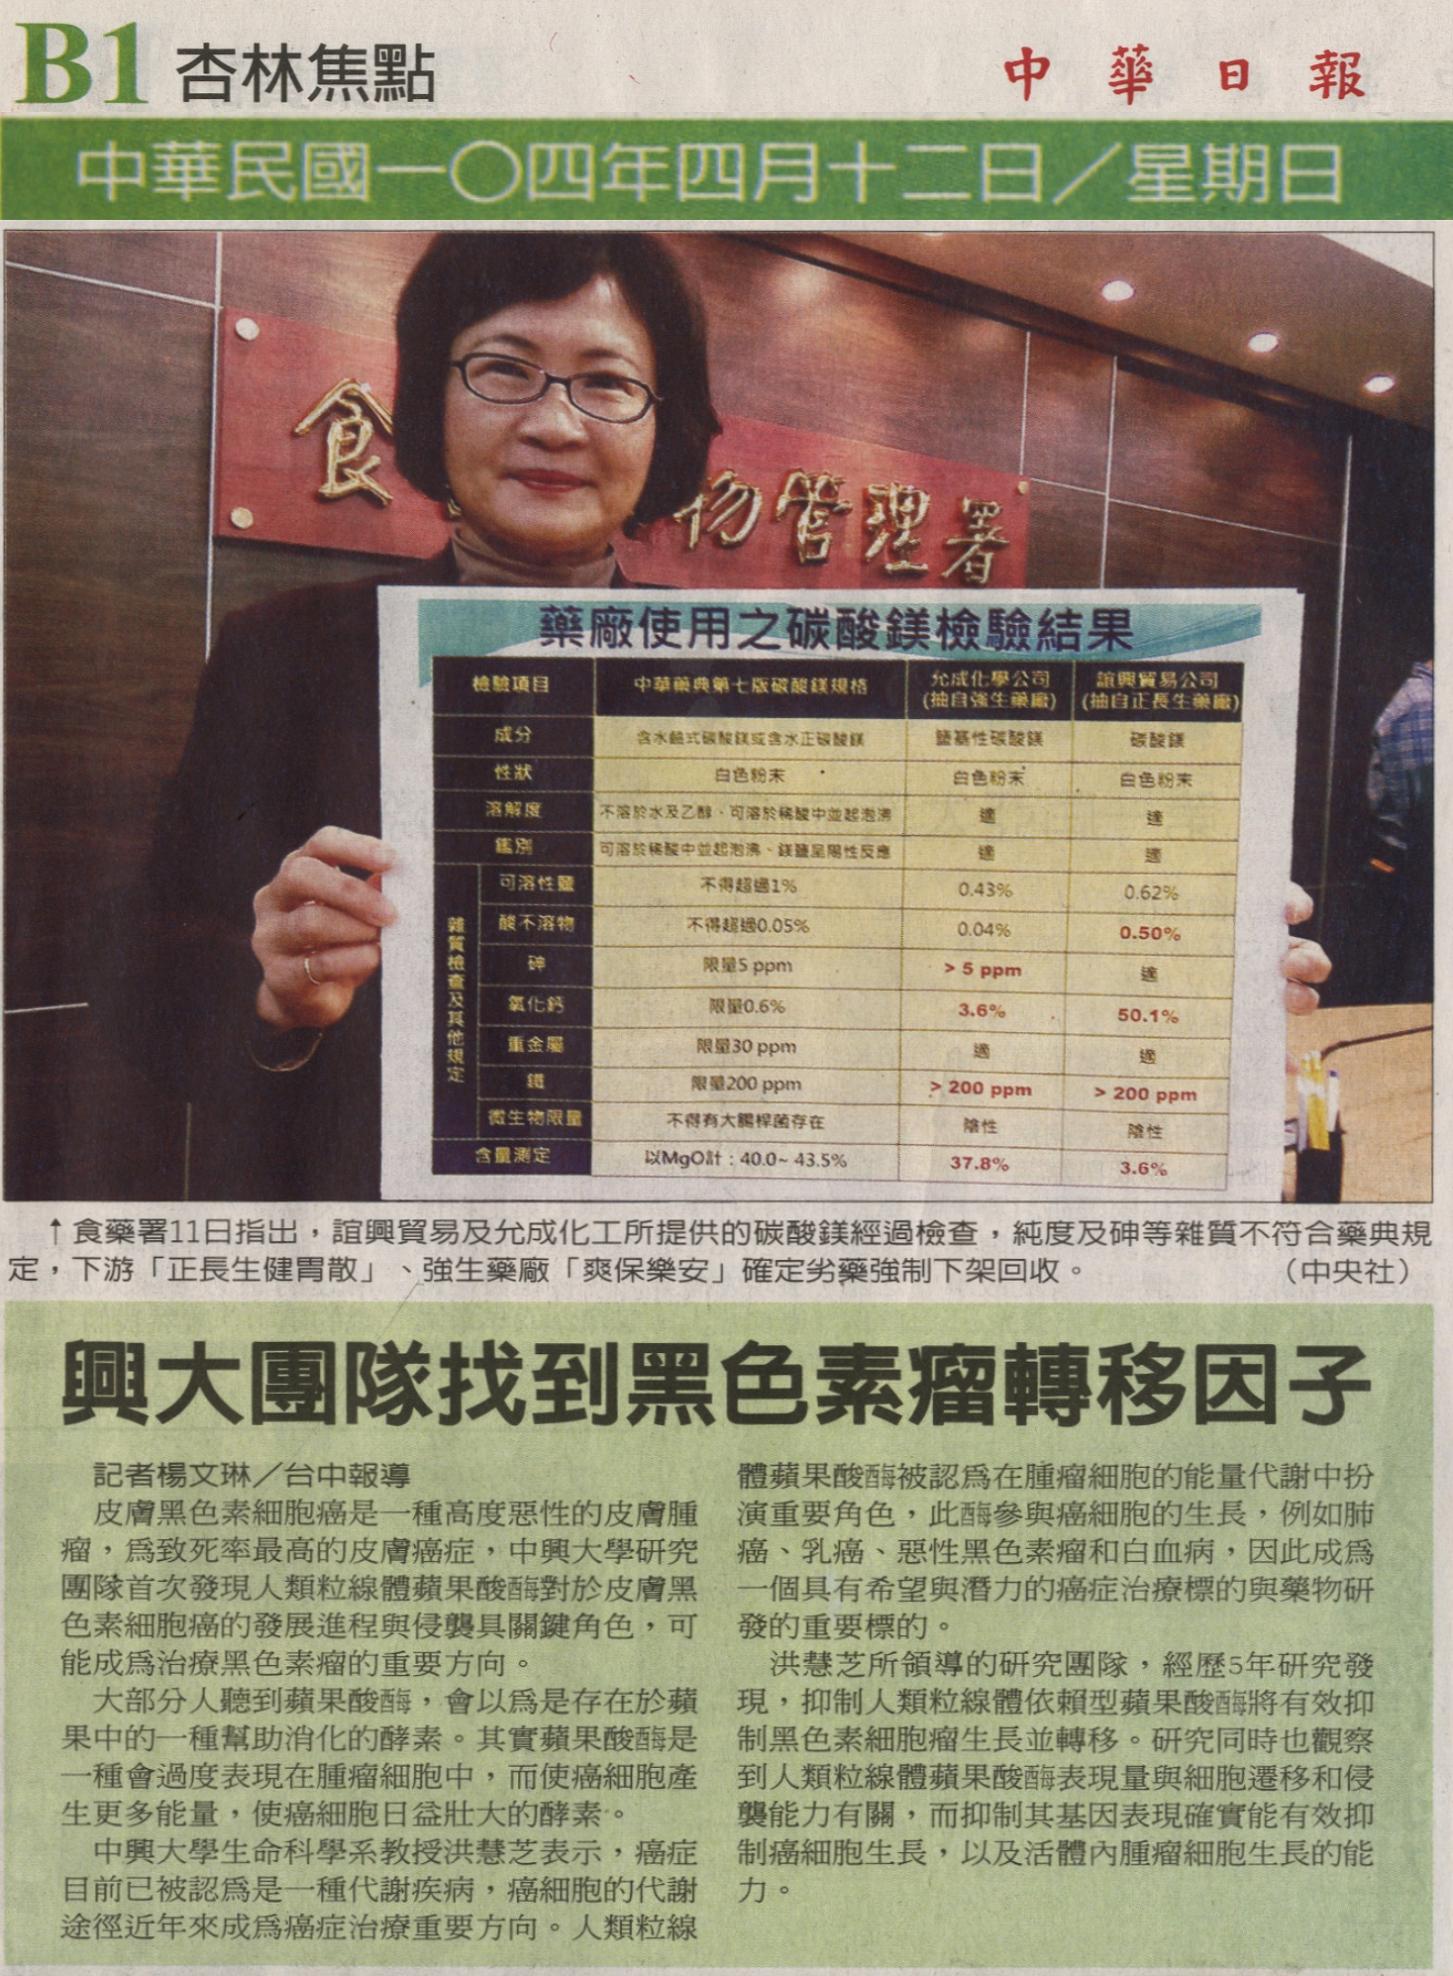 B1 杏林焦點
中華日報
中華民國一〇四年四月十二日／星期日
食 物管理署
藥廠使用之碳酸鎂檢驗結果
檢驗項目 中華藥典第七版碳酸鎂規格 允成化學公司 (抽自強生藥廠) 誼興貿易公司 (抽自正長生藥廠)
成分 含水鹼式碳酸鎂或含水正碳酸鎂 鹽基性碳酸鎂 碳酸鎂
性狀 白色粉末 白色粉末 白色粉末
溶解度 不溶於水及乙醇、可溶於稀酸中並起泡沸 適 適
鑑別 可溶於稀酸中並起泡沸、鎂鹽呈陽性反應 適 適
雜質檢查及其他規定
可溶性鹽 不得超過1% 0.43% 0.62%
酸不溶物 不得超過0.05% 0.04% 0.50%
砷 限量5 ppm > 5 ppm 適
氧化鈣 限量0.6% 3.6% 50.1%
重金屬 限量30 ppm 適 適
鐵 限量200 ppm > 200 ppm > 200 ppm
微生物限量 不得有大腸桿菌存在 陰性 陰性
含量測定 以MgO計：40.0~ 43.5% 37.8% 3.6%
↑食藥署11日指出，誼興貿易及允成化工所提供的碳酸鎂經過檢查，純度及砷等雜質不符合藥典規
定，下游「正長生健胃散」、強生藥廠「爽保樂安」確定劣藥強制下架回收。 （中央社）
興大團隊找到黑色素瘤轉移因子
記者楊文琳／台中報導
皮膚黑色素細胞癌是一種高度惡性的皮膚腫
瘤，為致死率最高的皮膚癌症，中興大學研究
團隊首次發現人類粒線體蘋果酸酶對於皮膚黑
色素細胞癌的發展進程與侵襲具關鍵角色，可
能成為治療黑色素瘤的重要方向。
大部分人聽到蘋果酸酶，會以為是存在於蘋
果中的一種幫助消化的酵素。其實蘋果酸酶是
一種會過度表現在腫瘤細胞中，而使癌細胞產
生更多能量，使癌細胞日益壯大的酵素。
中興大學生命科學系教授洪慧芝表示，癌症
目前已被認為是一種代謝疾病，癌細胞的代謝
途徑近年來成為癌症治療重要方向。人類粒線
體蘋果酸酶被認為在腫瘤細胞的能量代謝中扮
演重要角色，此酶參與癌細胞的生長，例如肺
癌、乳癌、惡性黑色素瘤和白血病，因此成為
一個具有希望與潛力的癌症治療標的與藥物研
發的重要標的。
洪慧芝所領導的研究團隊，經歷5年研究發
現，抑制人類粒線體依賴型蘋果酸酶將有效抑
制黑色素細胞瘤生長並轉移。研究同時也觀察
到人類粒線體蘋果酸酶表現量與細胞遷移和侵
襲能力有關，而抑制其基因表現確實能有效抑
制癌細胞生長，以及活體內腫瘤細胞生長的能
力。